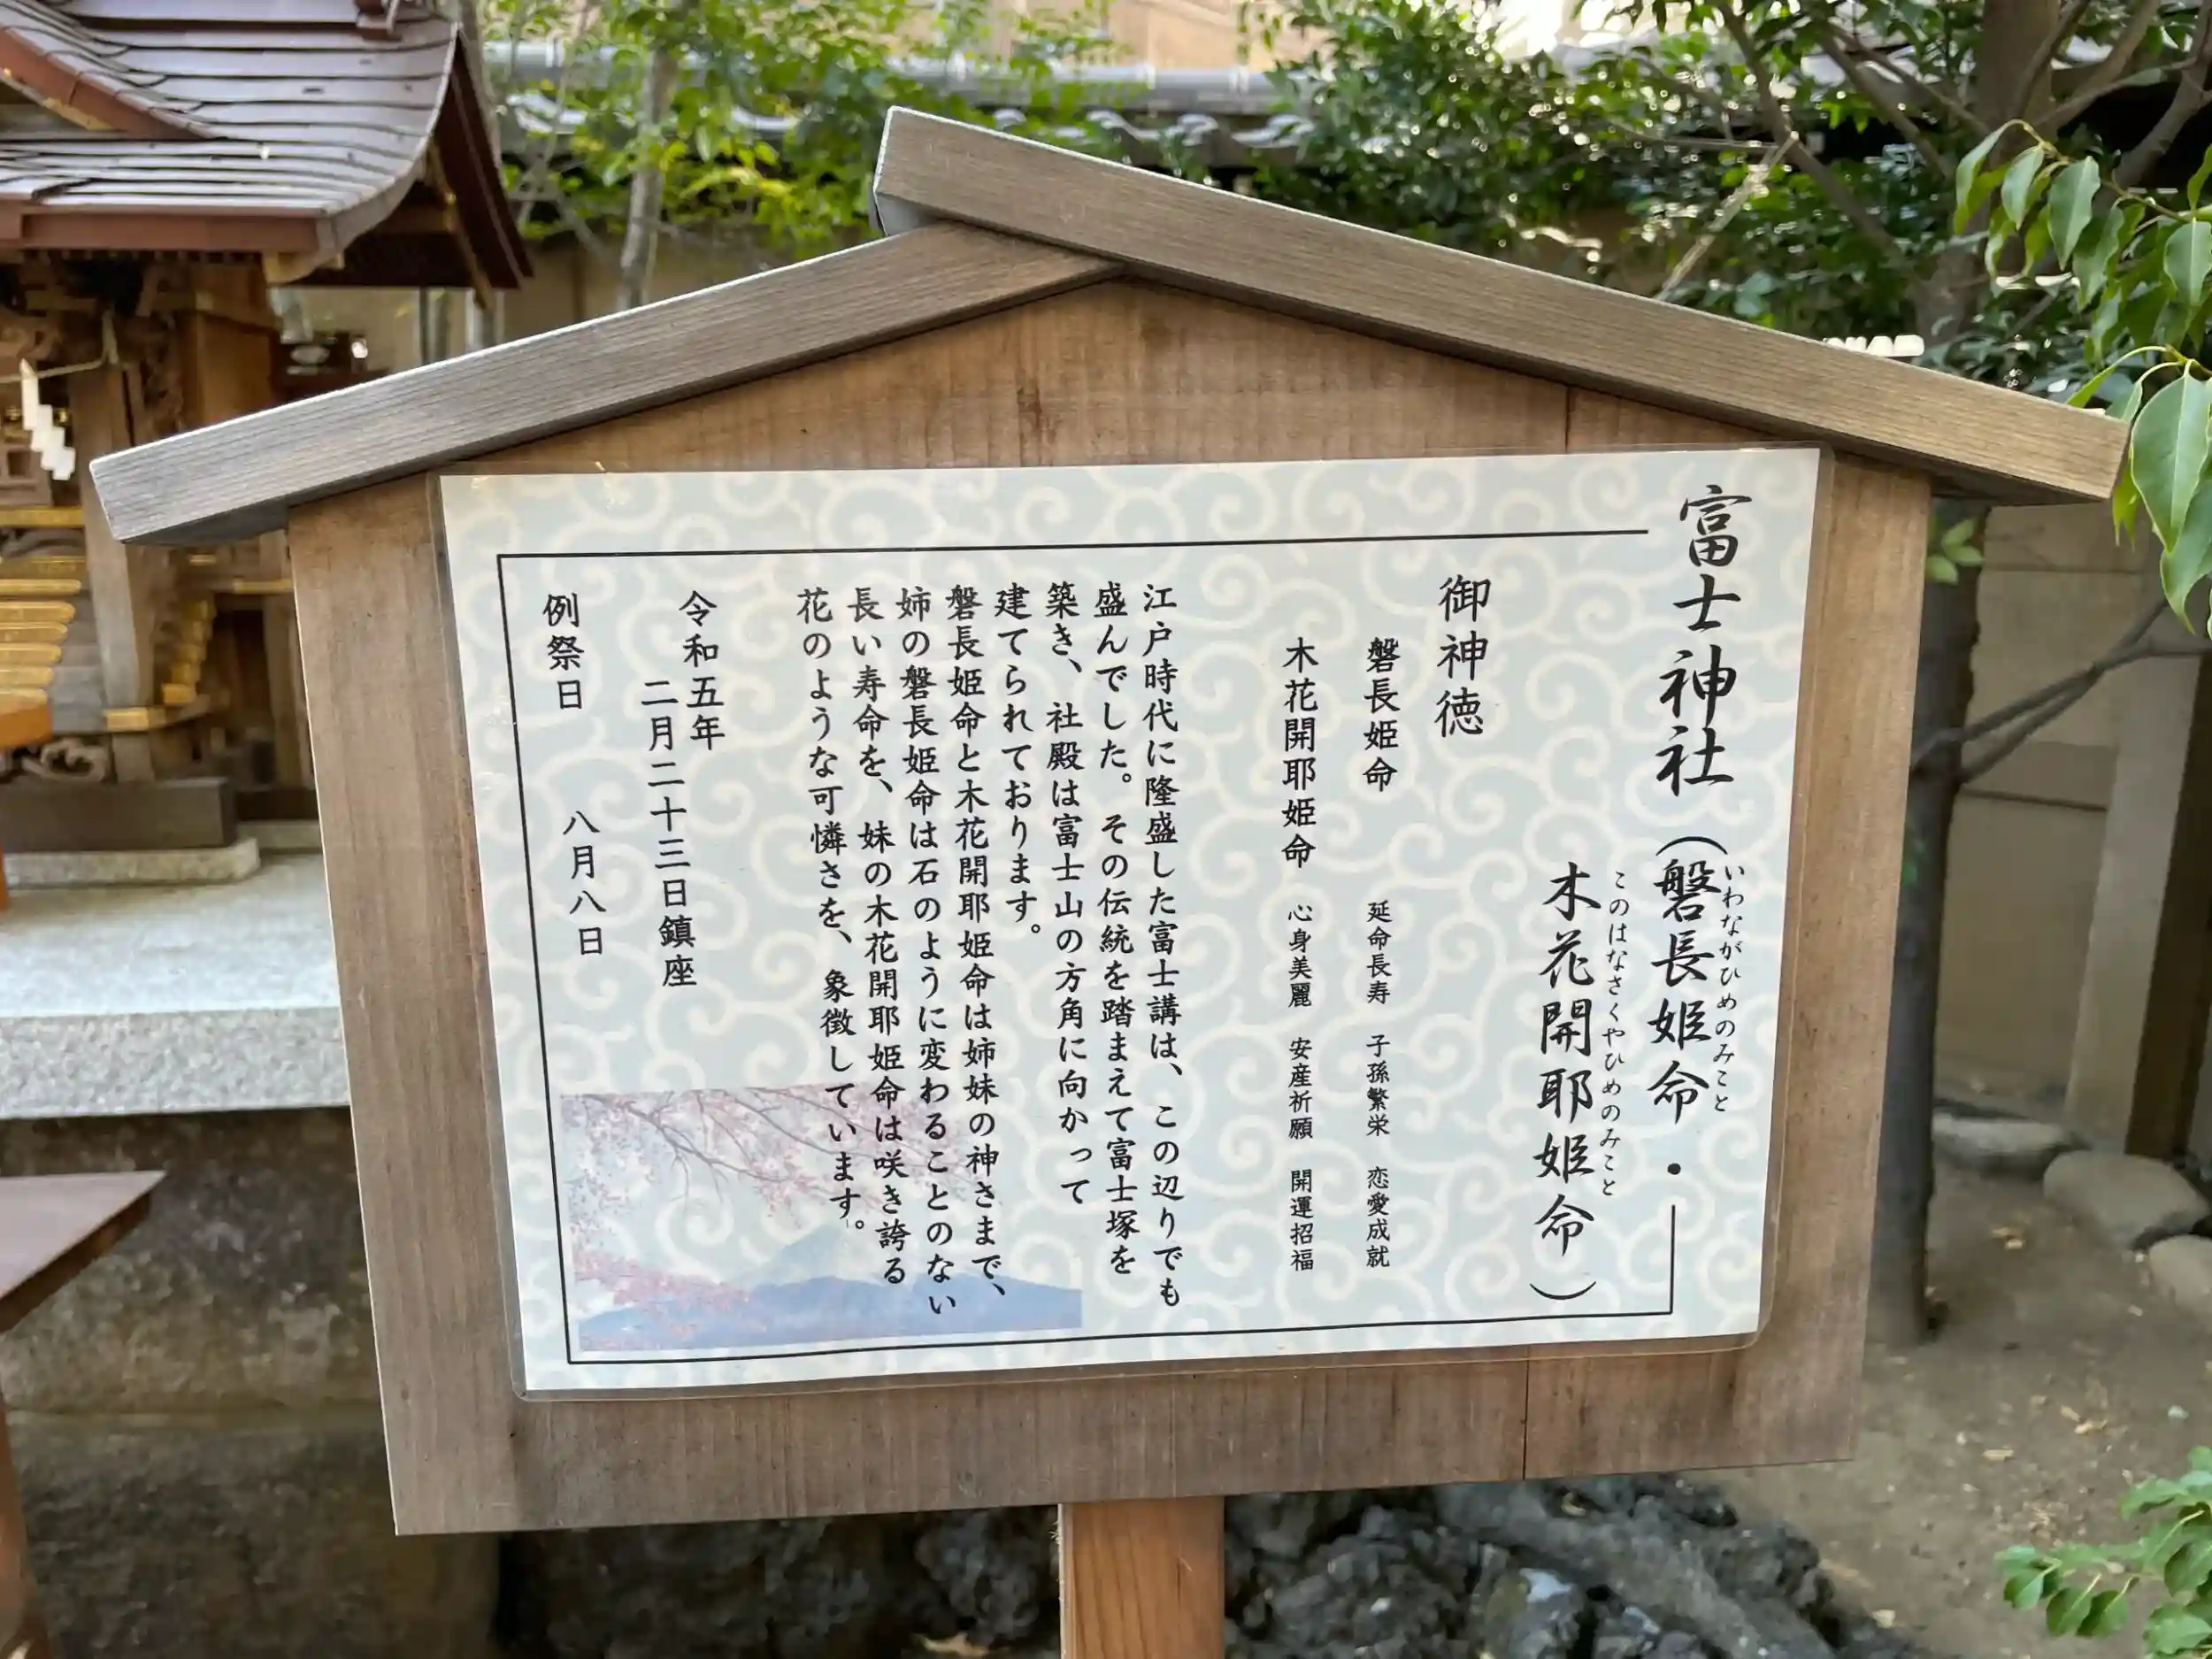 富士神社（磐長姫命・
いわながひめのみこと
木花開耶姫命）
このはなさくやひめのみこと
御神徳
磐長姫命 延命長寿 子孫繁栄 恋愛成就
木花開耶姫命 心身美麗 安産祈願 開運招福
江戸時代に隆盛した富士講は、この辺りでも
盛んでした。その伝統を踏まえて富士塚を
築き、社殿は富士山の方角に向かって
建てられております。
磐長姫命と木花開耶姫命は姉妹の神さまで、
姉の磐長姫命は石のように変わることのない
長い寿命を、妹の木花開耶姫命は咲き誇る
花のような可憐さを、象徴しています。
令和五年
二月二十三日鎮座
例祭日 八月八日